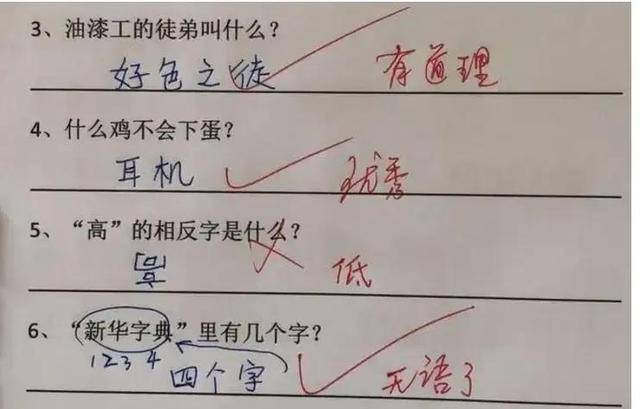 3、油漆工的徒弟叫什么？
好色之徒 有道理
4、什么鸡不会下蛋？
耳机 优秀
5、“高”的相反字是什么？
低
6、“新华字典”里有几个字？
1 2 3 4 四个字 无语了